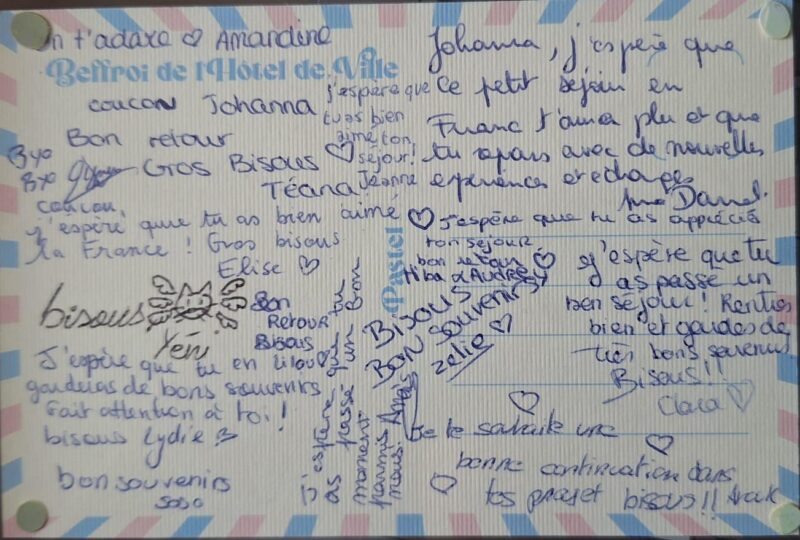 On t'adore ♡ Amandine
Beffroi de l'Hôtel de Ville
coucou Johanna
Bon retour
Gros Bisous
Téana
j'espère que
tu as bien
aimé ton
séjour!
Jeanne
Johanna, j'espère que
ce petit séjour en
France t'aura plu et que
tu repars avec de nouvelles
expériences et échanges
coucou,
j'espère que tu as bien aimé
la France ! Gros bisous
Elise ♡
♡ J'espère que tu as apprécié
ton séjour
bon retour ♡
Hiba & Audrey
Pastel
j'espère que tu
as passé un
bon séjour! Rentres
bien et gardes de
très bons souvenirs
Bisous!!
Clara ♡
bisous
Yéni
Bon
Retour
Bisous
Lilou
Bisous
Bon souvenirs
zélie ♡
J'espère que tu en
garderas de bons souvenirs
Fait attention à toi!
bisous Lydie
bon souvenirs
soso
J'espère que tu
as passé un bon
moment
parmis
nous. Anaïs
Je te souhaite une
bonne continuation dans
tes projet bisous!!